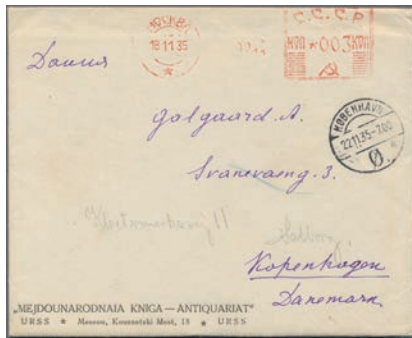 МОСКВА
18 11 35
С.С.С.Р
КОП *003 КОП
Дания
Golgaard A.
Svanevæng 3.
KØBENHAVN
22.11.35-7.00
Ø.
Kopenhagen
Danemark
„MEJDOUNARODNAIA KNIGA — ANTIQUARIAT“
URSS * Moscou, Kouznetski Most, 18 * URSS